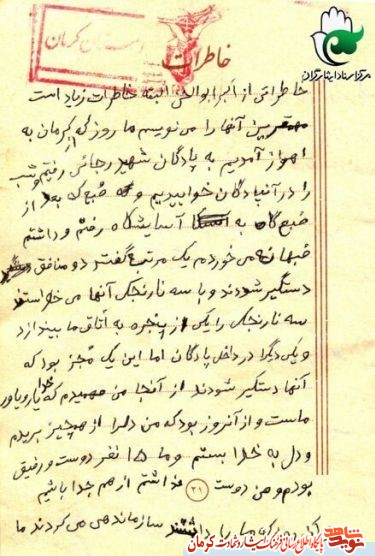 مرکز اسناد ایثارگران
خاطرات
خاطراتی از اکبر ابوالحی البته خاطرات زیاد است
مهمترین آنها را می نویسم ما روز که از کرمان به
اهواز آمدیم به پادگان شهید رجائی رفتم و شب
را در آن پادگان خوابیدیم و صبح که بعد از
صبح گاه به آسایشگاه رفتم و داشتم
صبهانه می خوردم یک مرتبه گفتند دو منافق
دستگیر شدند و با سه نارنجک آنها می خواستند
سه نارنجک را یکی از پنجره به اتاق ما بیندازد
و یکی دیگر در داخل پادگان اما این یک مجز بود که
آنها دستگیر شدند از آنجا من فهمیدم که خدا یار و یاور
ماست و از آنروز بود که من دلم را از همچیز بریدم
و دل به خدا بستم و ما ۱۵ نفر دوست و رفیق
بودم و من دوست ۲۱ نداشتم از هم جدا باشیم
سازماندهی می کردند ما
نوید شاهد
پایگاه اطلاع رسانی فرهنگ ایثار و شهادت کرمان